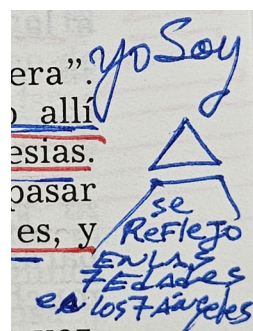 yo Soy
era”.
o allí
esias.
pasar
es, y
se
ReFleJO
EN LAS
7 EdAdes
en los 7 Ángeles